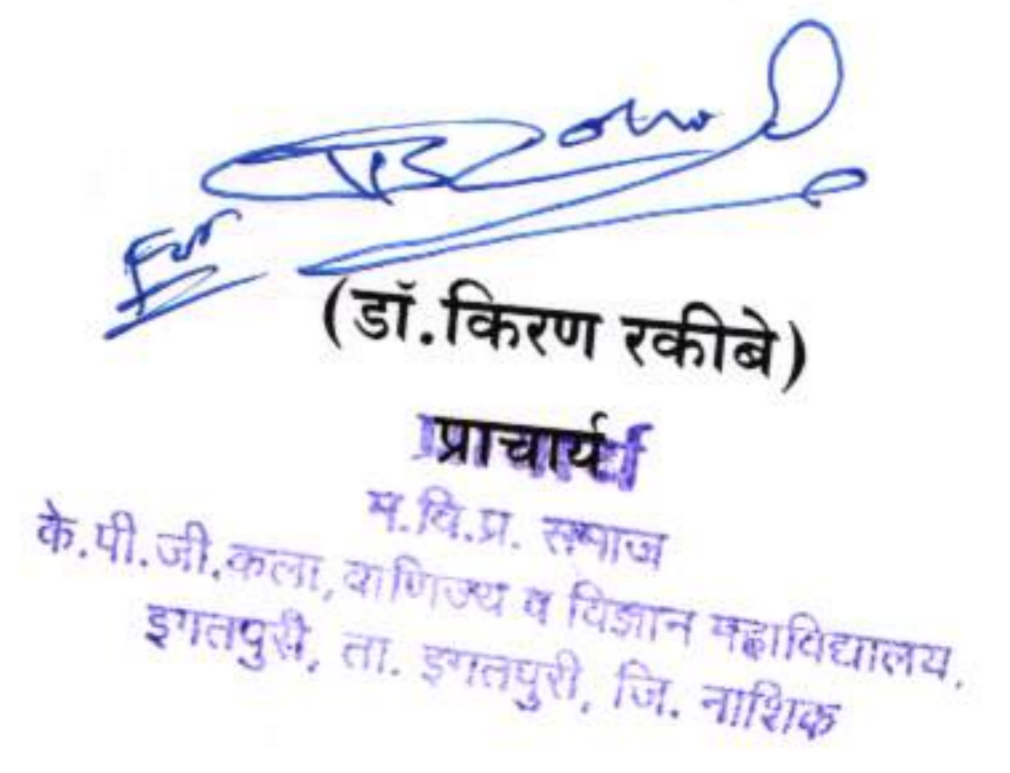 For
(डॉ.किरण रकीबे)
प्राचार्य
म.वि.प्र. समाज
के.पी.जी.कला, वाणिज्य व विज्ञान महाविद्यालय,
इगतपुरी, ता. इगतपुरी, जि. नाशिक